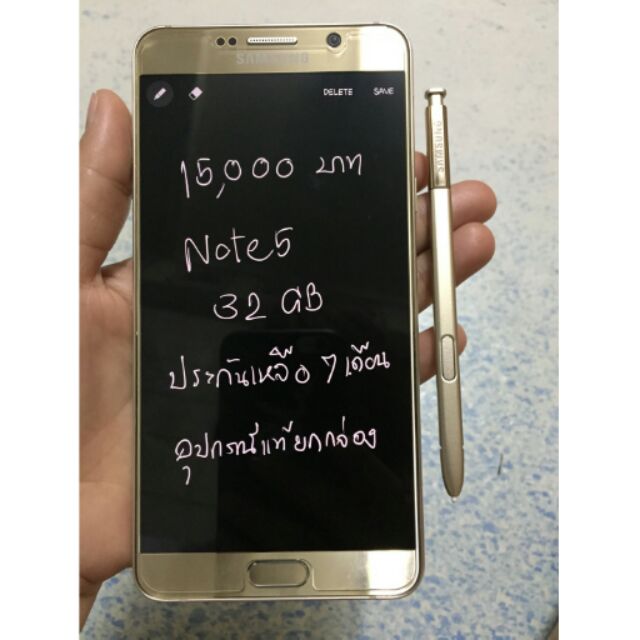 SAMSUNG
DELETE SAVE
15,000 บาท
Note5
32 GB
ประกันเหลือ 7 เดือน
อุปกรณ์แท้ยกกล่อง
SAMSUNG